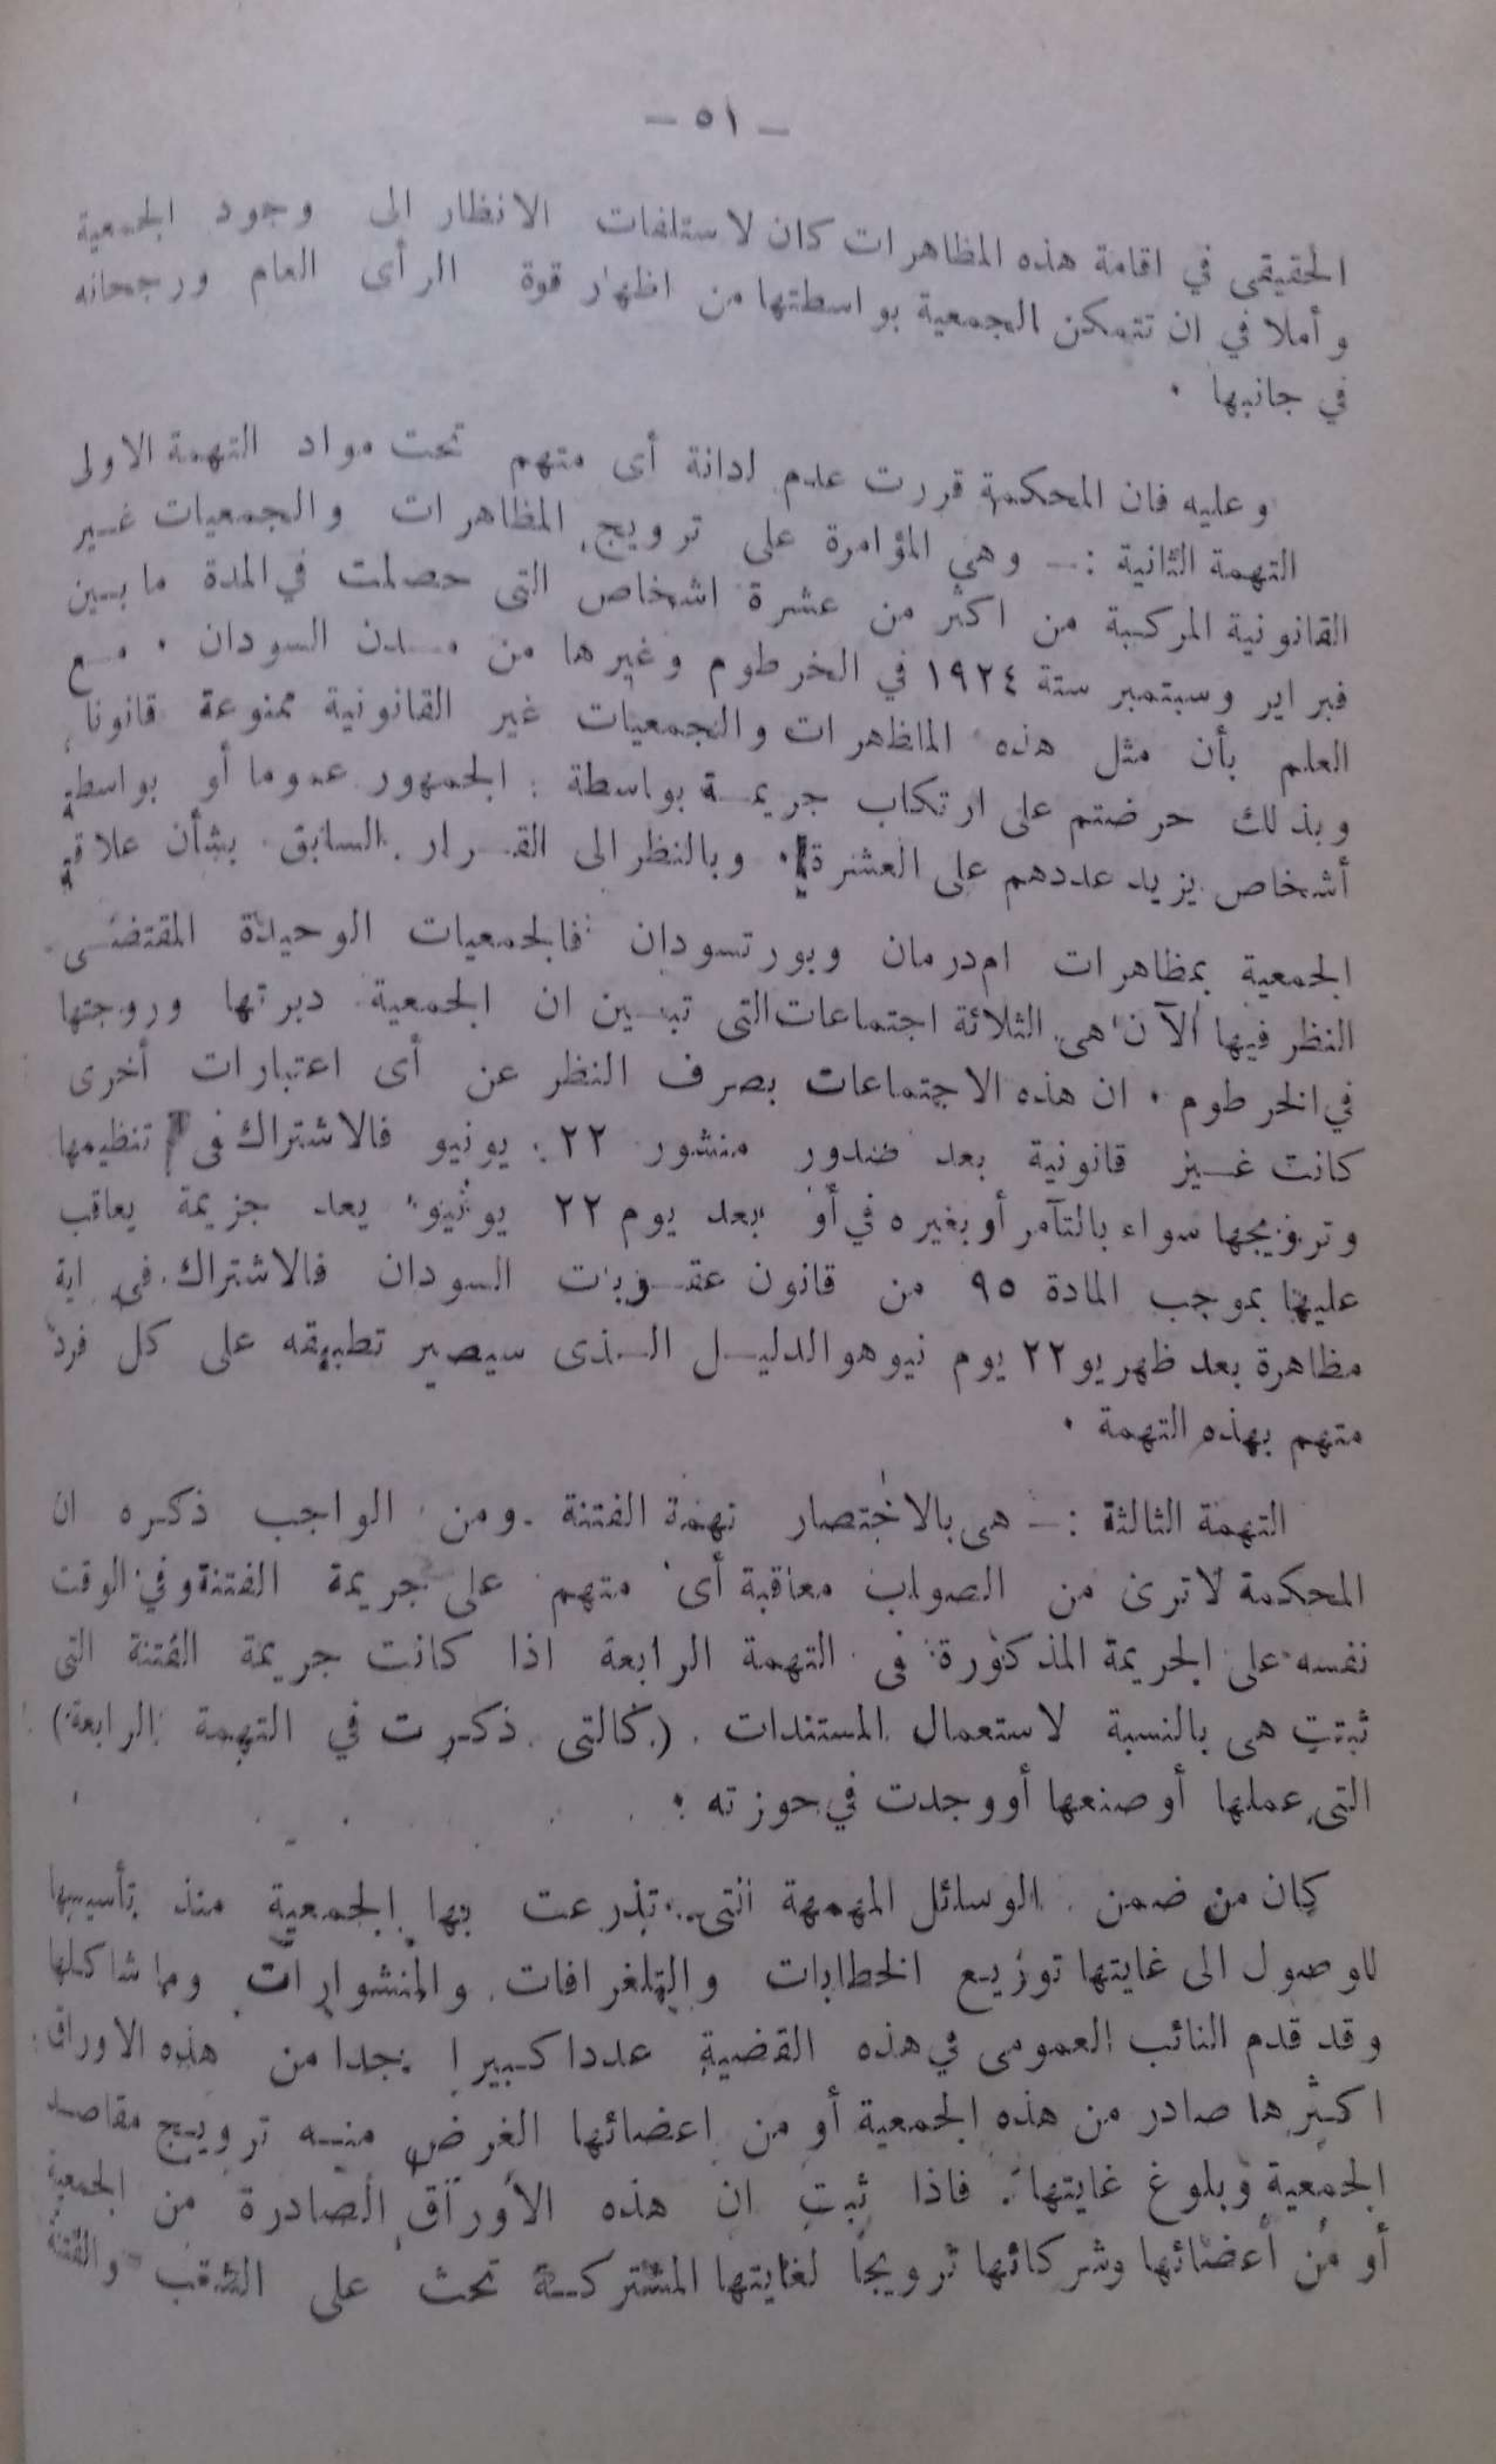 — ٥١ —
الحقيقى في اقامة هذه المظاهرات كان لاستلفات الانظار الى وجود الجمعية
وأملا في ان تتمكن الجمعية بواسطتها من اظهار قوة الرأى العام ورجحانه
في جانبها .
وعليه فان المحكمة قررت عدم ادانة أى متهم تحت مواد التهمة الاولى
التهمة الثانية :— وهي المؤامرة على ترويج المظاهرات والجمعيات غير
القانونية المركبة من اكثر من عشرة اشخاص التى حصلت في المدة ما بين
فبراير وسبتمبر ستة ١٩٢٤ في الخرطوم وغيرها من مدن السودان . مع
العلم بأن مثل هذه الماظهرات والجمعيات غير القانونية ممنوعة قانونا
وبذلك حرضتم على ارتكاب جريمة بواسطة الجمهور عموما أو بواسطة
أشخاص يزيد عددهم على العشرة . وبالنظر الى القرار السابق بشأن علاقة
الجمعية بمظاهرات ام درمان وبورتسودان فالجمعيات الوحيدة المقتضى
النظر فيها الآن هى الثلاثة اجتماعات التى تبين ان الجمعية دبرتها وروجتها
في الخرطوم . ان هذه الاجتماعات بصرف النظر عن أى اعتبارات أخرى
كانت غير قانونية بعد صدور منشور ٢٢ يونيو فالاشتراك فى تنظيمها
وترويجها سواء بالتآمر أو بغيره في أو بعد يوم ٢٢ يونيو يعد جريمة يعاقب
عليها بموجب المادة ٩٥ من قانون عقوبات السودان فالاشتراك فى اية
مظاهرة بعد ظهر يو ٢٢ يوم نيو هو الدليل الذى سيصير تطبيقه على كل فرد
متهم بهذه التهمة .
التهمة الثالثة :— هى بالاختصار تهمة الفتنة . ومن الواجب ذكره ان
المحكمة لا ترى من الصواب معاقبة أى متهم على جريمة الفتنة وفي الوقت
نفسه على الجريمة المذكورة فى التهمة الرابعة اذا كانت جريمة الفتنة التى
ثبتت هى بالنسبة لاستعمال المستندات . ( كالتى ذكرت في التهمة الرابعة )
التى عملها أو صنعها أو وجدت في حوزته .
كان من ضمن الوسائل المهمهة التى تذرعت بها الجمعية منذ تأسيسها
للوصول الى غايتها توزيع الخطابات والتلغرافات والمنشوارات وما شاكلها
وقد قدم النائب العمومى في هذه القضية عددا كبيرا جدا من هذه الاوراق
اكثرها صادر من هذه الجمعية أو من اعضائها الغرض منه ترويج مقاصد
الجمعية وبلوغ غايتها . فاذا ثبت ان هذه الأوراق الصادرة من الجمعية
أو من أعضائها وشركائها ترويجا لغايتها المشتركة تحث على الشغب والفتنة